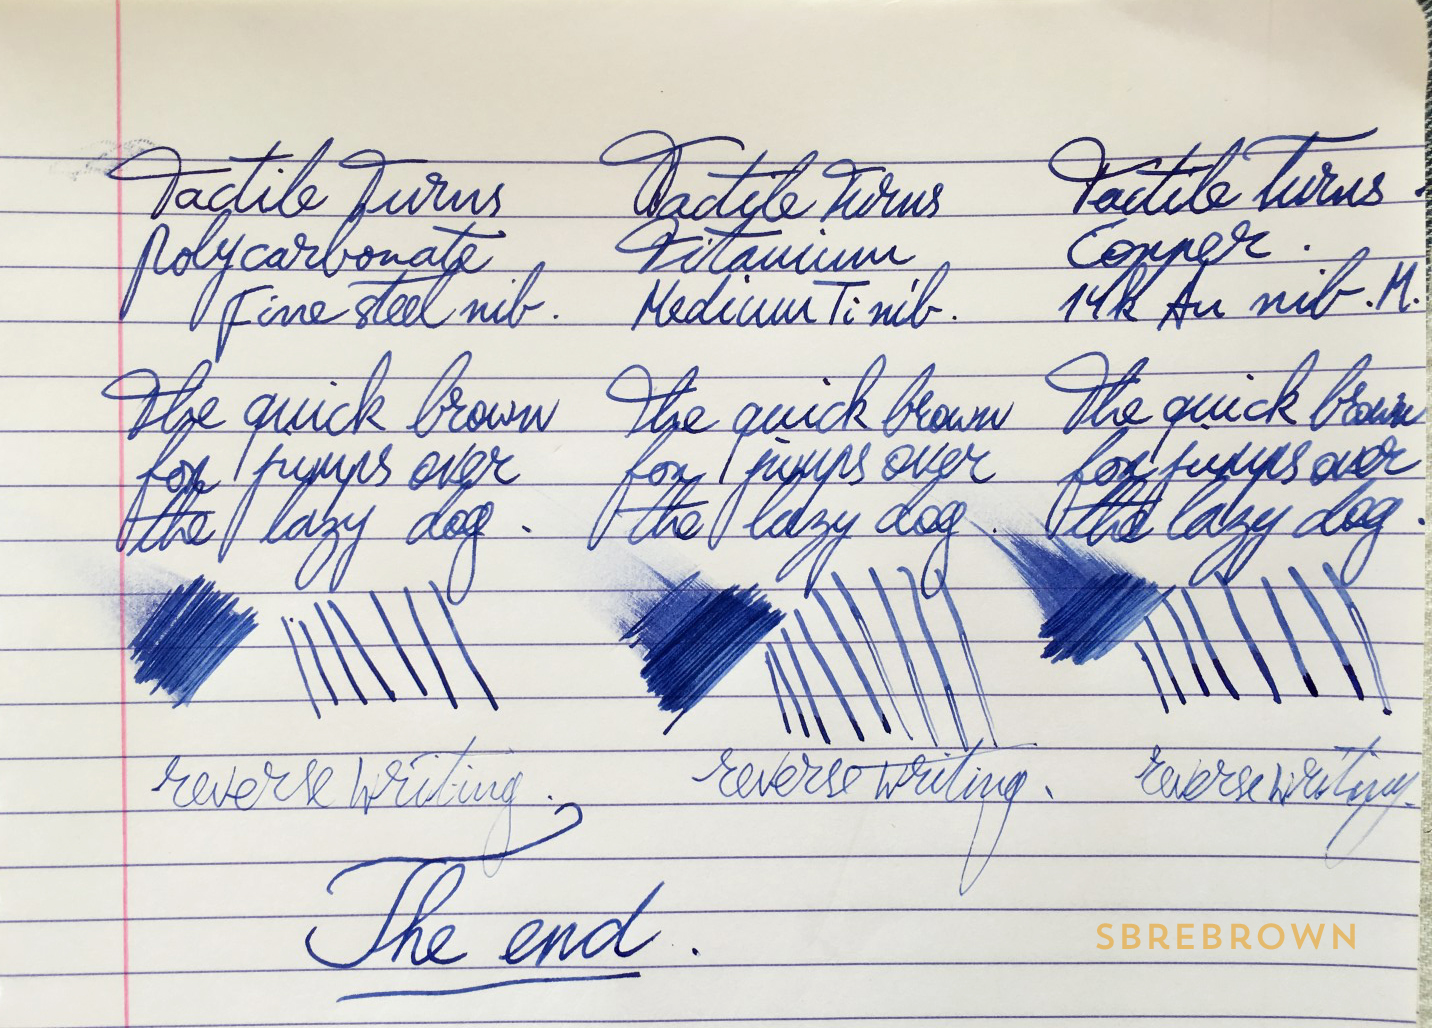 Tactile Turns
Polycarbonate
Fine steel nib.
The quick brown
fox jumps over
the lazy dog.
reverse writing.
Tactile Turns
Titanium
Medium Ti nib.
The quick brown
fox jumps over
the lazy dog.
reverse writing.
Tactile Turns.
Copper.
14k Au nib. M.
The quick brown
fox jumps over
the lazy dog.
reverse writing.
The end.
SBREBROWN